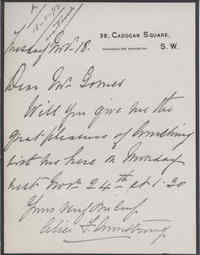 38, CADOGAN SQUARE,
S. W.
Tuesday Nov. 18.
Dear Mr Gomes
Will you give me the
great pleasure of lunching
with me here on Monday
next Nov. 24th at 1.30
Yours very truly
Alice F. Armstrong